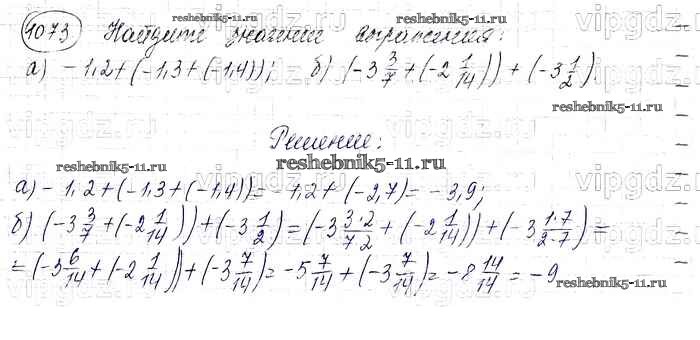 1073 Найдите значение выражения:
а) -1,2+(-1,3+(-1,4)); б) (-3 3/7 + (-2 1/14)) + (-3 1/2).
Решение:
а) -1,2+(-1,3+(-1,4)) = -1,2+(-2,7) = -3,9;
б) (-3 3/7 + (-2 1/14)) + (-3 1/2) = (-3 3·2/7·2 + (-2 1/14)) + (-3 1·7/2·7) =
= (-3 6/14 + (-2 1/14)) + (-3 7/14) = -5 7/14 + (-3 7/14) = -8 14/14 = -9
reshebnik5-11.ru
reshebnik5-11.ru
reshebnik5-11.ru
reshebnik5-11.ru
reshebnik5-11.ru
reshebnik5-11.ru
vipgdz.ru
vipgdz.ru
vipgdz.ru
vipgdz.ru
vipgdz.ru
vipgdz.ru